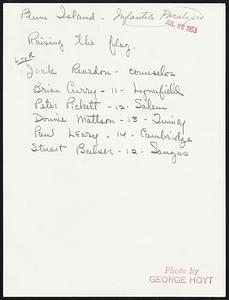 Plum Island - Infantile Paralysis
JUL 26 1953
Raising the flag.
L to R
Jack Reardon - counselor
Brian Curry - 11 - Lynnfield
Peter Pickett - 12 - Salem
Donnie Mattson - 13 - Quincy
Paul Leary - 14 - Cambridge
Stuart Balser - 12 - Saugus
Photo by
GEORGE HOYT